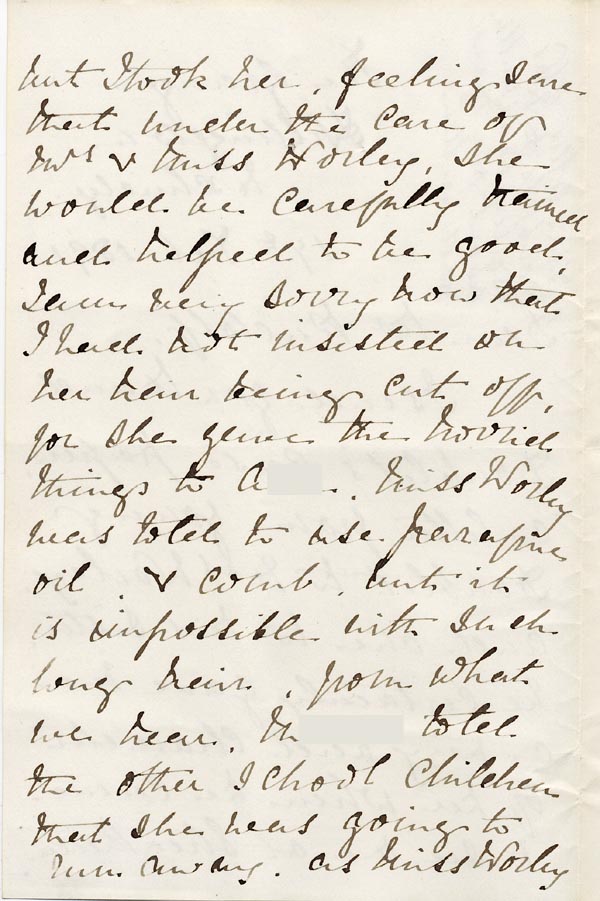 but I took her, feeling sure
that under the care of
Mrs & Miss Worley, she
would be carefully trained
and helped to be good,
I am very sorry now that
I had not insisted on
her hair being cut off,
for she gave the horrid
things to A . Miss Worley
was told to use parafine
oil, & comb, but it
is impossible with such
long hair, from what
we hear, told
the other School Children
that she was going to
run away. as Miss Worley